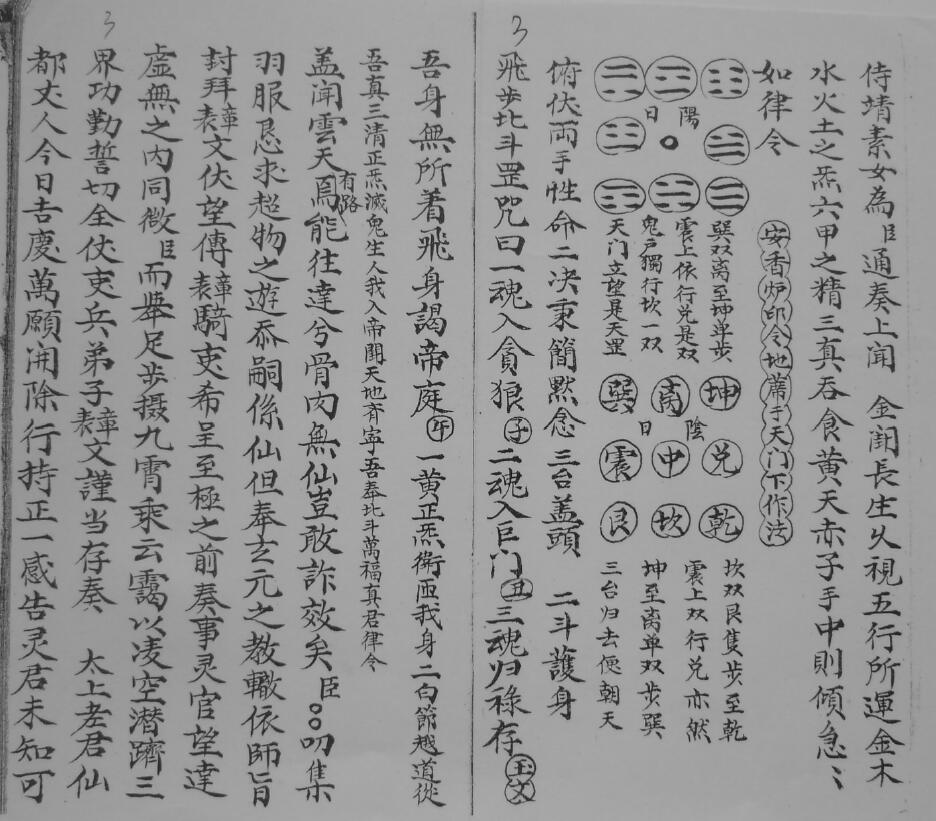 3
侍靖素女為臣通奏上聞　金闕長生久視五行所運金木
水火土之炁六甲之精三真吞食黄天赤子手中則傾急〻
如律令
安香炉印令地蓆于天门下作法
陽
日
巽双离至坤单步
震上依行兑是双
鬼户獨行坎一双
天门立望是天罡
坤 兑 乾
离 中 坎
巽 震 艮
陰
日
坎双艮隻步至乾
震上双行兑亦然
坤至离单双步巽
三台归去便朝天
俯伏両手性命二决秉簡默念三台盖頭　二斗護身
飛步北斗罡咒曰一魂入貪狼子二魂入巨门丑三魂归祿存
3
吾身無所着飛身謁帝庭午一黄正炁衛匝我身二白節越道從
吾真三清正炁滅鬼生人我入帝闕天地齐寧吾奉北斗萬福真君律令
盖闻雲天有路焉能往達兮骨肉無仙豈敢詐效矣臣〇〇叨集
羽服恳求超物之遊忝嗣係仙但奉玄元之教轍依師旨
封拜章表文伏望傳章表騎吏希呈至極之前奏事灵官望達
虚無之内同微臣而舉足步摄九霄乘云靄以凌空潜躋三
界功勤誓切全伏吏兵弟子章表文謹当存奏　太上老君仙
都丈人今日吉慶萬願開除行持正一感告灵君未知可